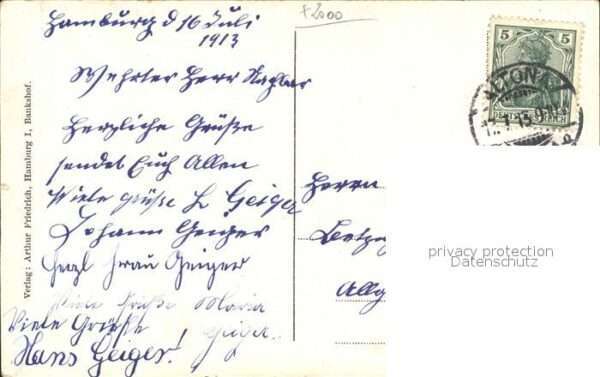 Hamburg d 16 Juli
1913
Wehrter Herr Nachbar
Herzliche Grüße
sendet Euch Allen
Viele grüße H Geiger
Johann Geiger
Frau Geiger
Viele Grüße Maria
Geiger.
Viele Grüße
Hans Geiger!
Verlag: Arthur Friedrich, Hamburg I, Bankshof.
5 5
DEUTSCHES REICH
ALTONA
Herrn
Allg
privacy protection
Datenschutz